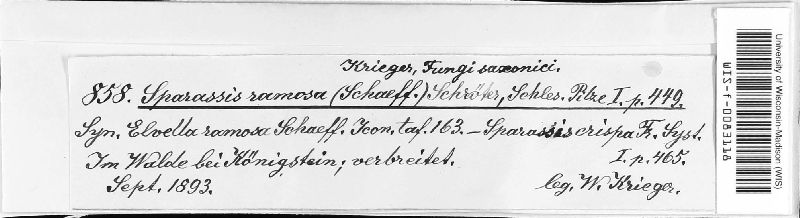 Krieger, Fungi saxonici.
858. Sparassis ramosa (Schaeff.) Schröter, Schles. Pilze I. p. 449.
Syn. Elvella ramosa Schaeff. Icon. taf. 163. — Sparassis crispa Fr. Syst.
I. p. 465.
Im Walde bei Königstein; verbreitet.
Sept. 1893.
leg. W. Krieger.
University of Wisconsin-Madison (WIS)
WIS-f-0083118